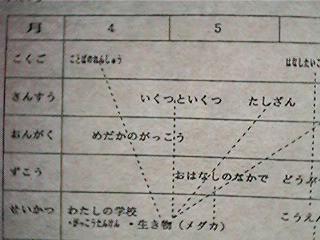 月 4 5
こくご ことばのれんしゅう はなしたいこ
さんすう いくつといくつ たしざん
おんがく めだかのがっこう
ずこう おはなしのなかで どうぶ
せいかつ わたしの学校 こうえん
・がっこうたんけん ・生き物（メダカ）